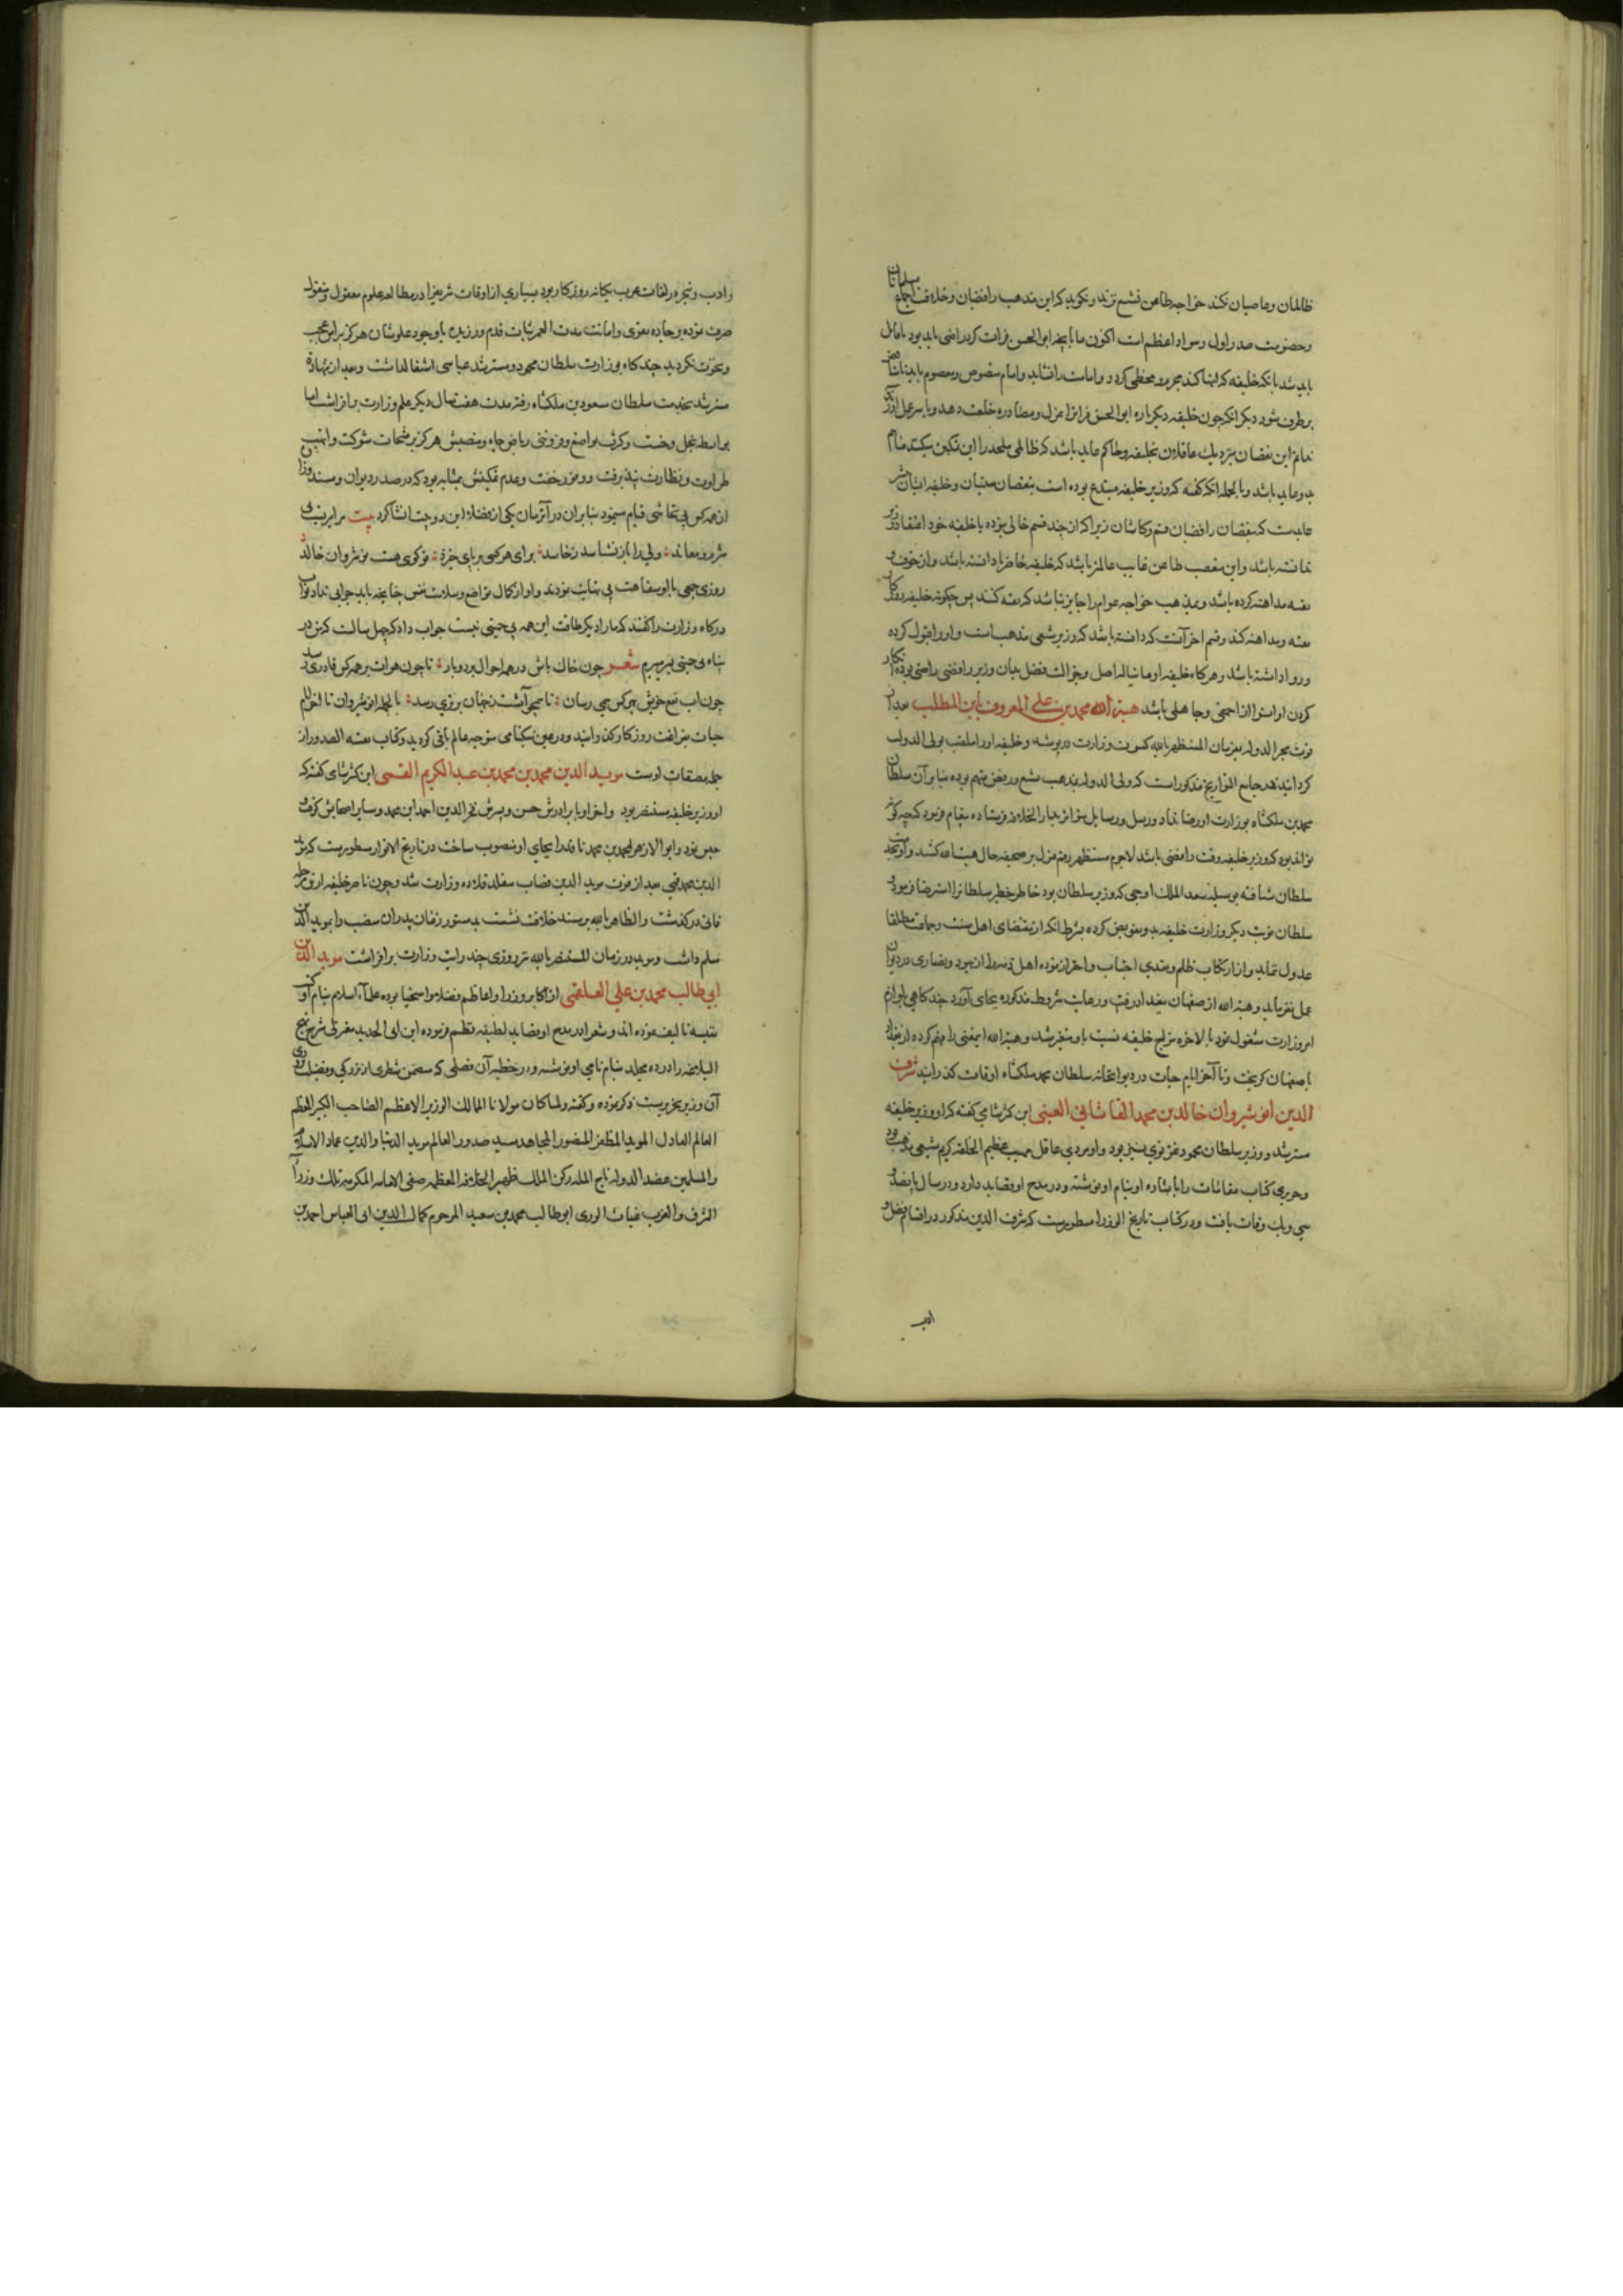 ظالمان وعاصیان نکند خواجه طاعن نشم نزند ونکوید که این مذهب رافضیان وخلاف اجماع مسلمانان
وحضرت صدر اول وسواد اعظم است اکنون ما بآنچه ابو الحسن فرات کرد راضی باید بود
باید شد بانکه خلیفه که اینها کند مجرم ومخطی کردد وامامت را نشاید وامام منصوص ومعصوم باید
برطرف شود دیکر انکه چون خلیفه دیکرباره ابوالحسن فرات را عزل ومصادره خلعت دهد وبا سر عمل
این نقصان بنزدیک عاقلان بخلیفه وحاکم عاید باشد که ظالمی ملحد را این تمکین میکند
بدو عاید باشد وبالجمله انکه کفته که وزیر خلیفه مبتدع بوده است بنقصان سنیان وخلیفه ایشان
عایدست که بنقصان رافضیان قم وکاشان زیرا که از چند قسم خالی نبوده یا خلیفه خود اعتقاد وزیر
ندانسته باشد واین بمذهب طاعن غایب عالمتر باشد که خلیفه حاضر یا دانسته باشد واز خوف
تقیه مداهنه کرده باشد وبمذهب خواجه عوام را جایز نباشد که تقیه کنند پس چکونه خلیفه روزکار
تقیه ومداهنه کند وقسم اخر آنست که دانسته باشد که وزیر شیعی مذهب است واو را قبول کرده
وروا داشته باشد وهرکاه خلیفه اوها شاله اصل وجزالت فضل بدان وزیر رافضی راضی بوده انکار
کردن او را سزا از احمقی وجاهلی باشد هبة الله محمد بن علی المعروف بابن المطلب بعد از
فوت مجد الدوله بفرمان المستظهر بالله کسوت وزارت درپوشید وخلیفه او را ملقب بولی الدوله
کردانید ودر جامع التواریخ مذکور است که ولی الدوله بمذهب تشیع ورفض متهم بوده بنا بر آن سلطان
محمد بن ملکشاه بوزارت او رضا نداد ورسل ورسایل متواتر بدار الخلافه فرستاده پیغام فرمود که چکونه
تواند بود که وزیر خلیفه وقت رافضی باشد لاجرم مستظهر رقم عزل بر صحیفه حال هبة الله کشید واو بخدمت
سلطان شتافته بوسیله سعد الملک اوجی که وزیر سلطان بود خاطر خطیر سلطان را استرضا فرمود و
سلطان نوبت دیکر وزارت خلیفه بدو تفویض کرده بشرط انکه از مقتضای اهل سنت وجماعت مطلقا
عدول ننماید واز ارتکاب ظلم وتعدی اجتناب واحتراز نموده اهل ذمه را از یهود ونصاری در دیوان
عمل نفرماید وهبة الله از صفهان ببغداد رفت ورعایت شروط مذکوره بجای آورد چندکاهی بلوازم
امر وزارت مشغول بود بالاخره مزاج خلیفه نسبت باو متغیر شد وهبة الله اینمعنی را فهم کرده از بغداد
باصفهان کریخت وتا آخر ایام حیات در دیوانخانه سلطان محمد ملکشاه اوقات کذرانید شرف
الدین انوشیروان خالد بن محمد القاشانی العینی ابن کثیر شامی کفته که او وزیر خلیفه
مسترشد ووزیر سلطان محمود غزنوی نیز بود واو مردی عاقل مهیب عظیم الخلقه کریم شیعی مذهب بود
وحریری کتاب مقامات را باشاره او بنام او نوشته ودر مدح او قصاید دارد ودر سال پانصد و
سی ویک وفات یافت ودر کتاب تاریخ الوزرا مسطورست که شرف الدین مذکور در اقسام فضل و
ادب
وادب وتبحر در لغات عرب یکانه روزکار بود بسیاری از اوقات شریف را در مطالعه علوم معقول ومنقول
صرف نموده وبر جاده تقوی وامانت مدت العمر ثبات قدم ورزیده باوجود علو شان هرکز پیرامن عجب
ونخوت نکردید چندکاه بوزارت سلطان محمود ومسترشد عباسی اشتغال داشت وبعد از شهادت
مسترشد بخدمت سلطان مسعود بن ملکشاه رفته مدت هفت سال دیکر علم وزارت برافراشت اما
بواسطه بخل وخست وکثرت تواضع وفروتنی ریاض جاه ومنصبش هرکز برشحات شوکت وابهت
طراوت ونظارت نپذیرفت ووفور خفت وعدم تمکینش بمثابه بود که در صدر دیوان ومسند وزارت
از همه کس بی تحاشی قیام مینمود بنابران در آنزمان یکی از فضلا این دو بیت انشا کرد بیت
ولی را باز نشناسد ز حاسد برای هر کسی بر پای خیزد تو کوی هست نوشروان خالد
روزی جمعی با او سفاهت بی نهایت نمودند واو از کمال تواضع وسلامت نفس چنانچه باید جوابی نداد نواب
درکاه وزارت را کفتند که ما را دیکر طاقت این همه بی حمیتی نیست جواب داد که چهل سالست که من در
پناه بی حمیتی بسر میبرم شعر چون خاک باش در همه احوال بردبار تا چون هوات بر همه کس قادری رسد
چون اب نفع خویش بهر کس همی رسان تا همچو آتشت ز جهان برتری رسد بالجمله انوشیروان تا اخر ایام
حیات بفراغت روزکار کذرانید ودر عین نیکنامی متوجه عالم باقی کردید وکتاب نفثة الصدور از
جمله مصنفات اوست موید الدین محمد بن محمد بن عبد الکریم القمی ابن کثیر شامی کفته که
او وزیر خلیفه مستنصر بود واخر او با برادرش حسن وپسرش فخر الدین احمد ابن محمد وسایر اصحابش کرفته
حبس نمود وابو الازهر احمد بن محمد ناقد را بجای او منصوب ساخت در تاریخ الانوار مسطورست که موید
الدین محمد قمی بعد از فوت موید الدین قصاب متقلد قلاده وزارت شد وچون ناصر خلیفه از این مرحله
فانی درکذشت والظاهر بالله بر مسند خلافت نشست بدستور زمان پدر آن منصب را بموید الدین
مسلم داشت وموید در زمان المستنصر بالله نیز روزی چند رایت وزارت برافراشت موید الدین
ابی طالب محمد بن علی العلقمی از اکابر وزرا واعاظم فضلا واسخیا بوده علمآء اسلام بنام او کتب
نفیسه تالیف نموده اند وشعرا در مدح او قصاید لطیفه نظم فرموده ابن ابی الحدید معتزلی شرح نهج
البلاغه را در ده مجلد بنام نامی او نوشته ودر خطبه آن فصلی که متضمن شطری از بزرکی وفضیلت
آن وزیر بحریرست ذکر نموده وکفته ولما کان مولانا المالک الوزیر الاعظم الصاحب الکبیر المعظم
العالم العادل الموید المظفر المنصور المجاهد سید صدور العالم موید الدنیا والدین عماد الاسلام
والمسلمین عضد الدوله تاج المله رکن الملک ظهیر الخلافه المعظمه صفی الامامه المکرمه ملک وزرآء
الشرق والغرب غیاث الوری ابو طالب محمد بن سعید المرحوم کمال الدین ابی العباس احمد بن